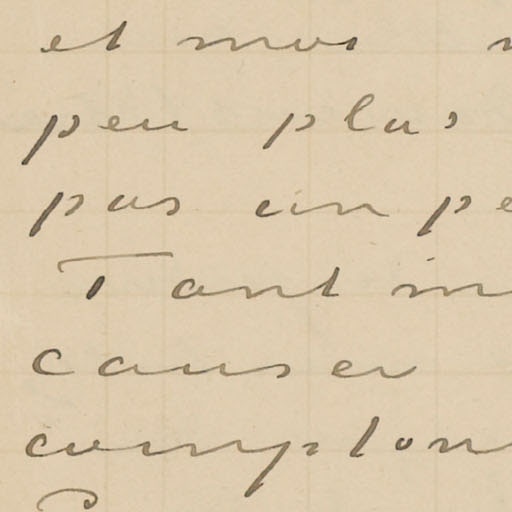 et mos
peu plus
pas un pe
Tant in
causer
compton